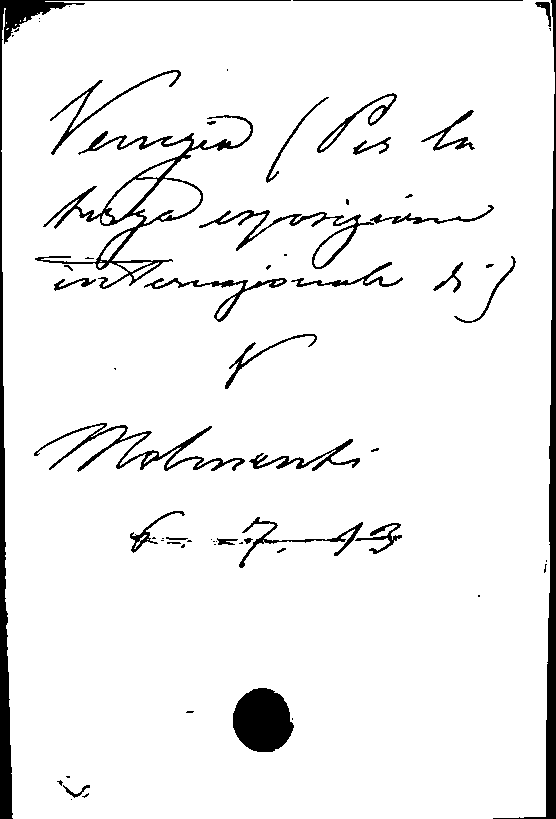 Venezia (Per la
terza esposizione
internazionale di)
V
Molmenti
6. 7. 13